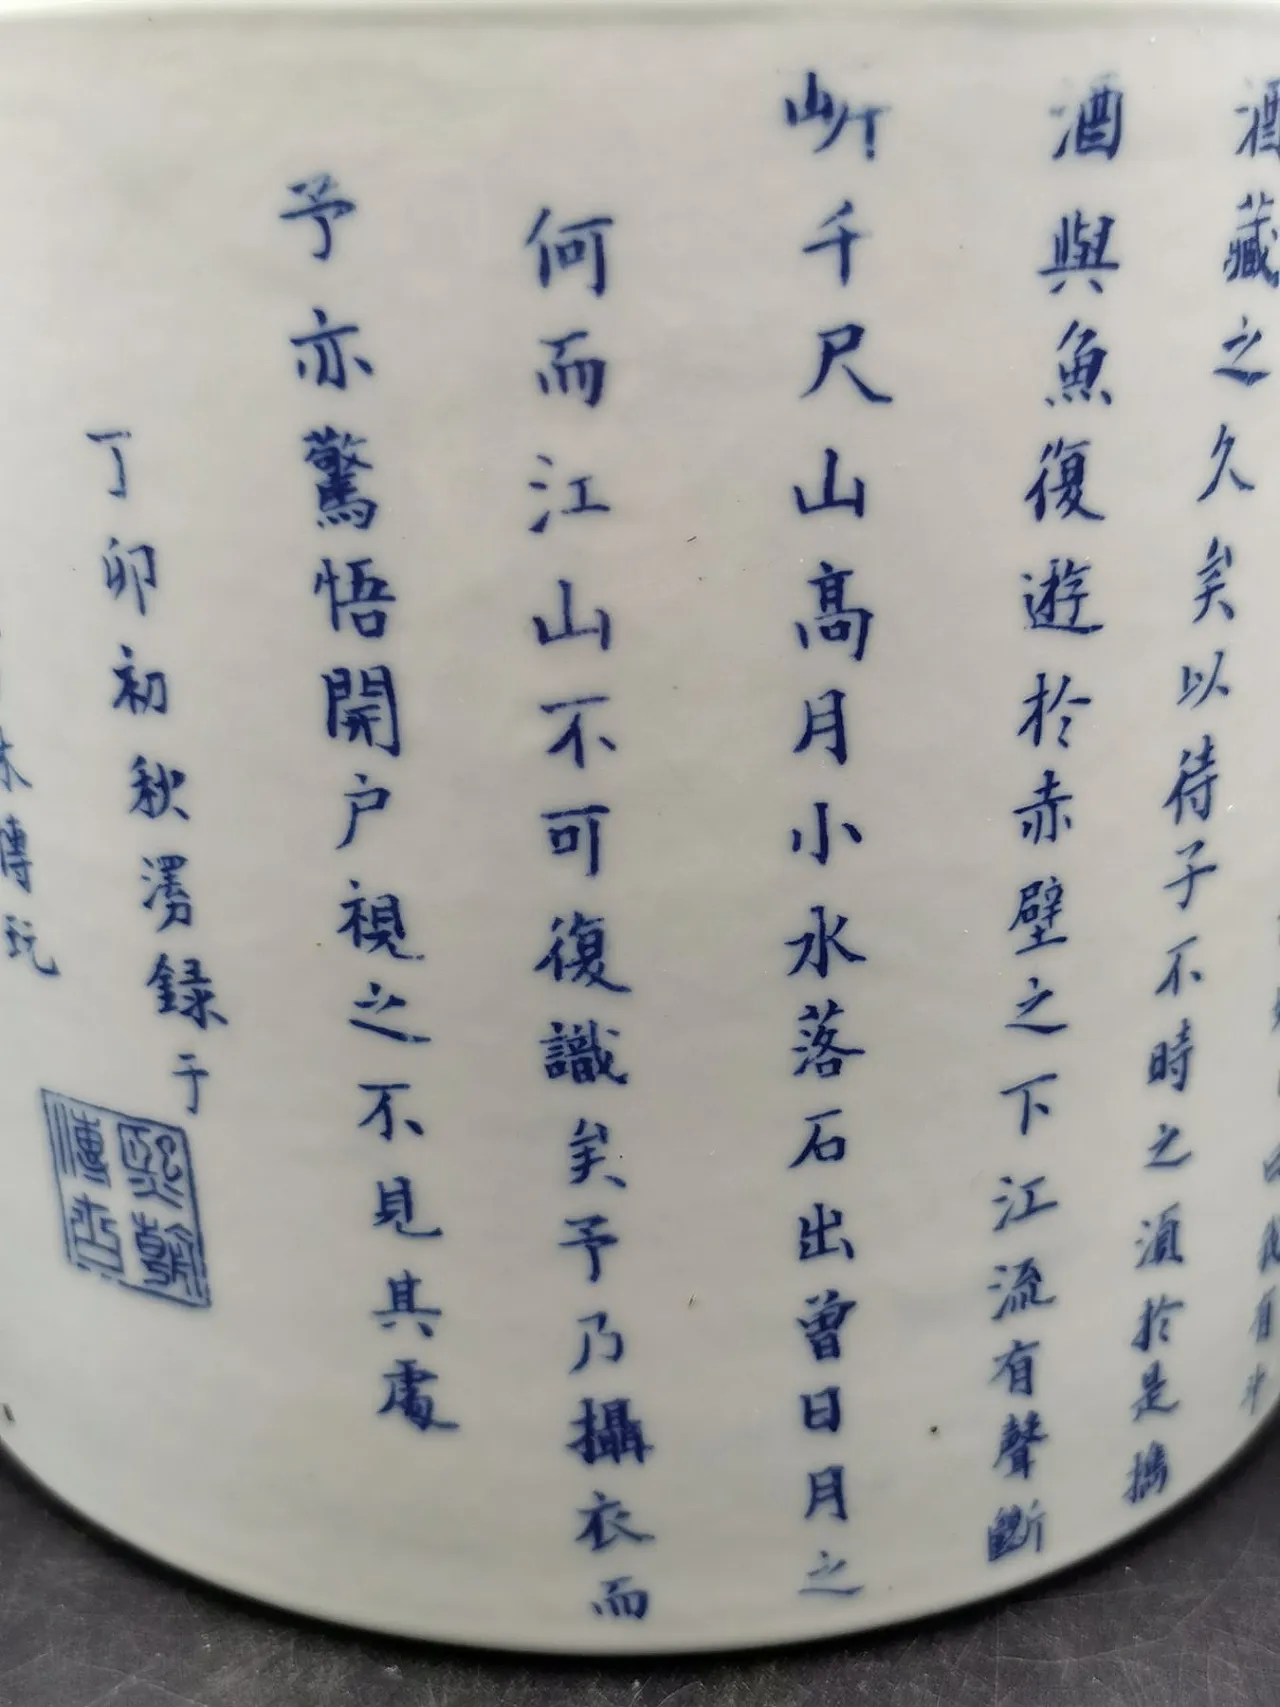 酒藏之久矣以待子不時之湏於是攜
酒與魚復遊於赤壁之下江流有聲斷
岓千尺山高月小水落石出曾日月之
何而江山不可復識矣予乃攝衣而
予亦驚悟開户視之不見其處
丁卯初秋澷録于
熙朝
博古
傳玩